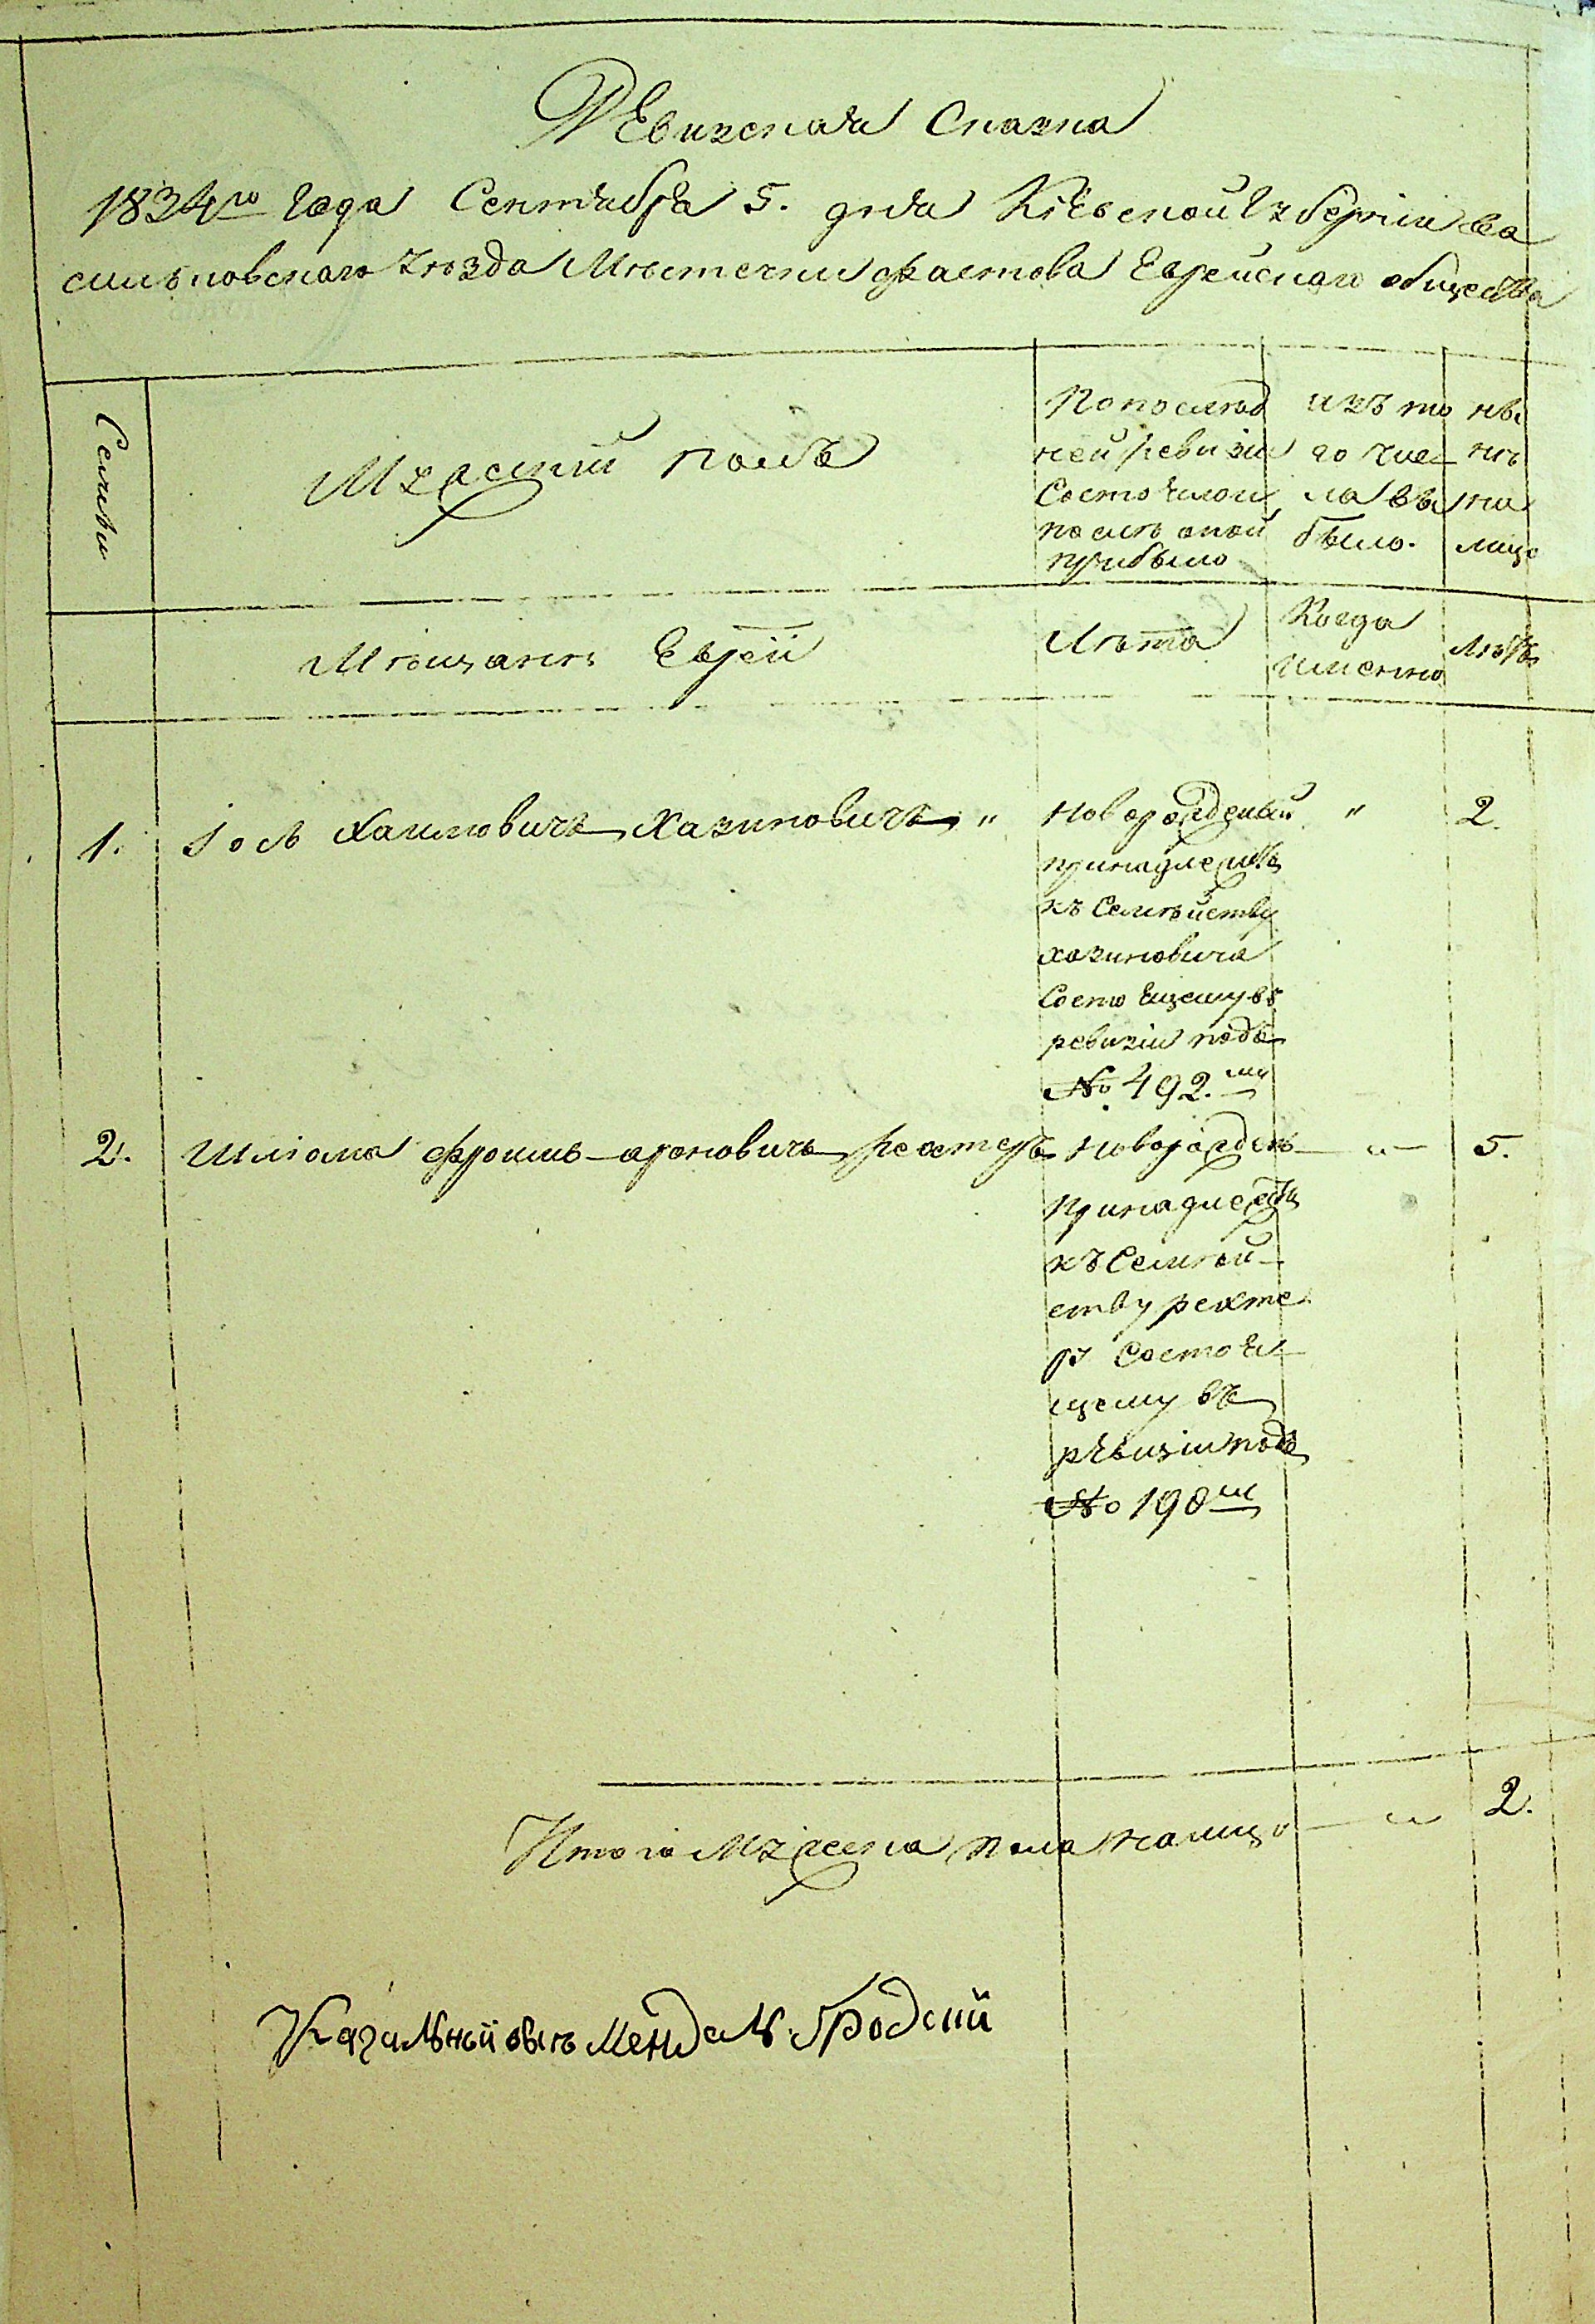 Ревизская Сказка
1834го года Сентября 5. дня Кіевской Губерніи Ва
сильковского Уезда Местечки Фастова Еврейскаго общества
Семьи
Мужескій полъ
По послед
ней ревизіи
Состояло и
после оной
прибыло
изъ то
го чис
ла вы
было.
ны
не
на
лицо
Мещане Евреи
Лета
Когда
именно
Лета
1. Іось Хаимовичъ Хазиновичъ „ Новорожденый „ 2.
принадлежитъ
къ Семейству
Хазиновича
Состоящему въ
ревизіи подъ
№ 492.му
2. Шліома Фроимъ-Ароновичъ Рехтеръ Новорожденъ — „ — 5.
Принадлежитъ
къ Семей-
ству рехте
ра Состоя-
щему въ
ревизіи подъ
№ 190м
Итого Мужеска пола налицо — „ 2.
Кагальный Мендель Бродский